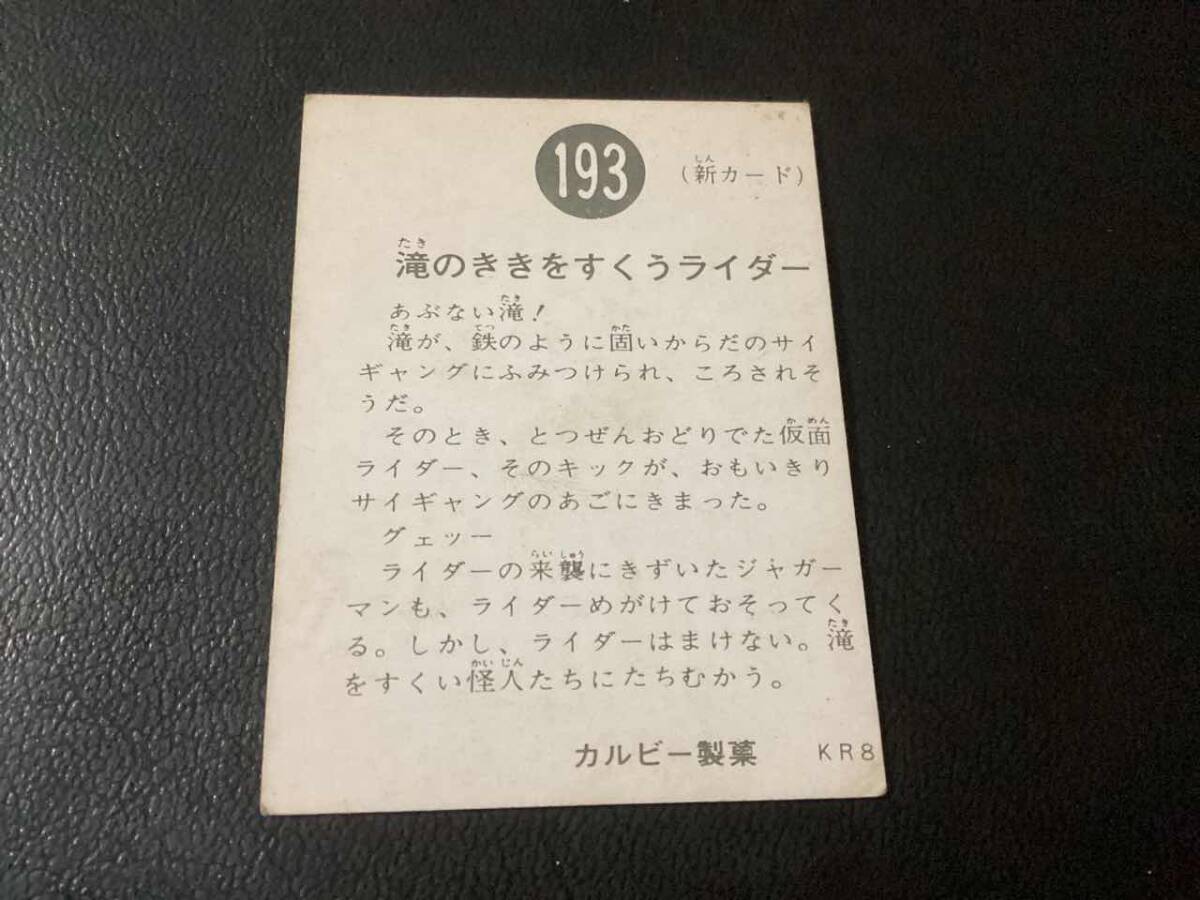 193
(新カード)
しん
たき
滝のききをすくうライダー
たき
あぶない滝!
たき てつ かた
滝が、鉄のように固いからだのサイ
ギャングにふみつけられ、ころされそ
うだ。
か めん
そのとき、とつぜんおどりでた仮面
ライダー、そのキックが、おもいきり
サイギャングのあごにきまった。
グェッー
らい しゅう
ライダーの来襲にきずいたジャガー
マンも、ライダーめがけておそってく
たき
る。しかし、ライダーはまけない。滝
かい じん
をすくい怪人たちにたちむかう。
カルビー製菓 KR8